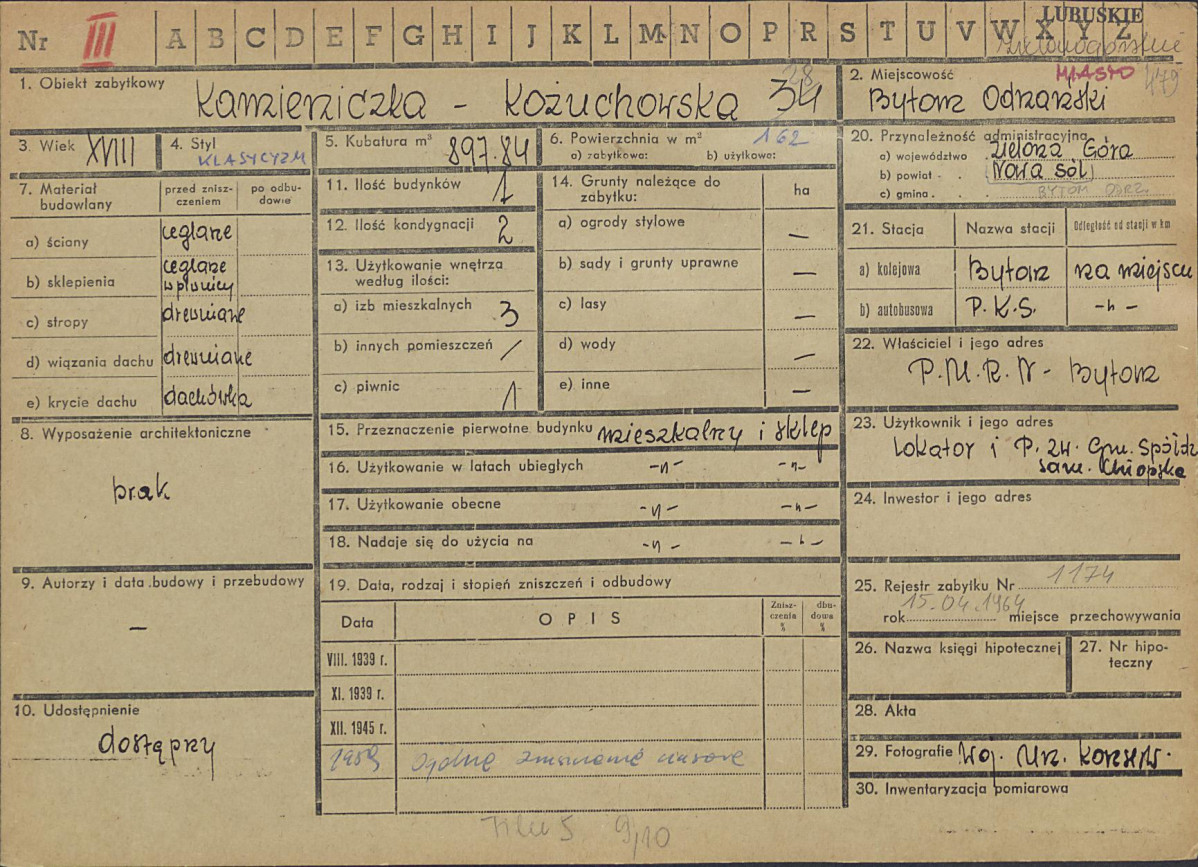 LUBUSKIE
Nr III A B C D E F G H I J K L M N O P R S T U V W X Y Z
1. Obiekt zabytkowy
Kamieniczka - Kożuchowska 34
28
2. Miejscowość
MIASTO
Bytom Odrzański
3. Wiek XVIII
4. Styl
KLASYCYZM
5. Kubatura m³ 897.84
6. Powierzchnia w m² 162
a) zabytkowa: b) użytkowe:
20. Przynależność administracyjna
a) województwo Zielona Góra
b) powiat Nowa Sól
c) gmina BYTOM ODRZ.
7. Materiał budowlany
przed zniszczeniem
po odbudowie
a) ściany ceglane
b) sklepienia ceglane w piwnicy
c) stropy drewniane
d) wiązania dachu drewniane
e) krycie dachu dachówka
11. Ilość budynków 1
12. Ilość kondygnacji 2
13. Użytkowanie wnętrza
według ilości:
a) izb mieszkalnych 3
b) innych pomieszczeń /
c) piwnic 1
14. Grunty należące do
zabytku:
ha
a) ogrody stylowe —
b) sady i grunty uprawne —
c) lasy —
d) wody —
e) inne —
21. Stacja
Nazwa stacji
Odległość od stacji w km
a) kolejowa Bytom na miejscu
b) autobusowa P.K.S. -"-
22. Właściciel i jego adres
P.M.R.N - Bytom
8. Wyposażenie architektoniczne
brak
15. Przeznaczenie pierwotne budynku mieszkalny i sklep
16. Użytkowanie w latach ubiegłych -"- -"-
17. Użytkowanie obecne -"- -"-
18. Nadaje się do użycia na -"- -"-
23. Użytkownik i jego adres
Lokator i P. 24. Gm. Spółdz
Sam. Chłopska
24. Inwestor i jego adres
9. Autorzy i data budowy i przebudowy
—
19. Data, rodzaj i stopień zniszczeń i odbudowy
Data
OPIS
Zniszczenia %
dbudowa %
VIII. 1939 r.
XI. 1939 r.
XII. 1945 r.
1959 Ogólne zniszczenie
25. Rejestr zabytku Nr 1174
15.04.1964
rok miejsce przechowywania
26. Nazwa księgi hipotecznej
27. Nr hipoteczny
10. Udostępnienie
dostępny
28. Akta
29. Fotografie Woj. Urz. Konserw.
30. Inwentaryzacja pomiarowa
9/10